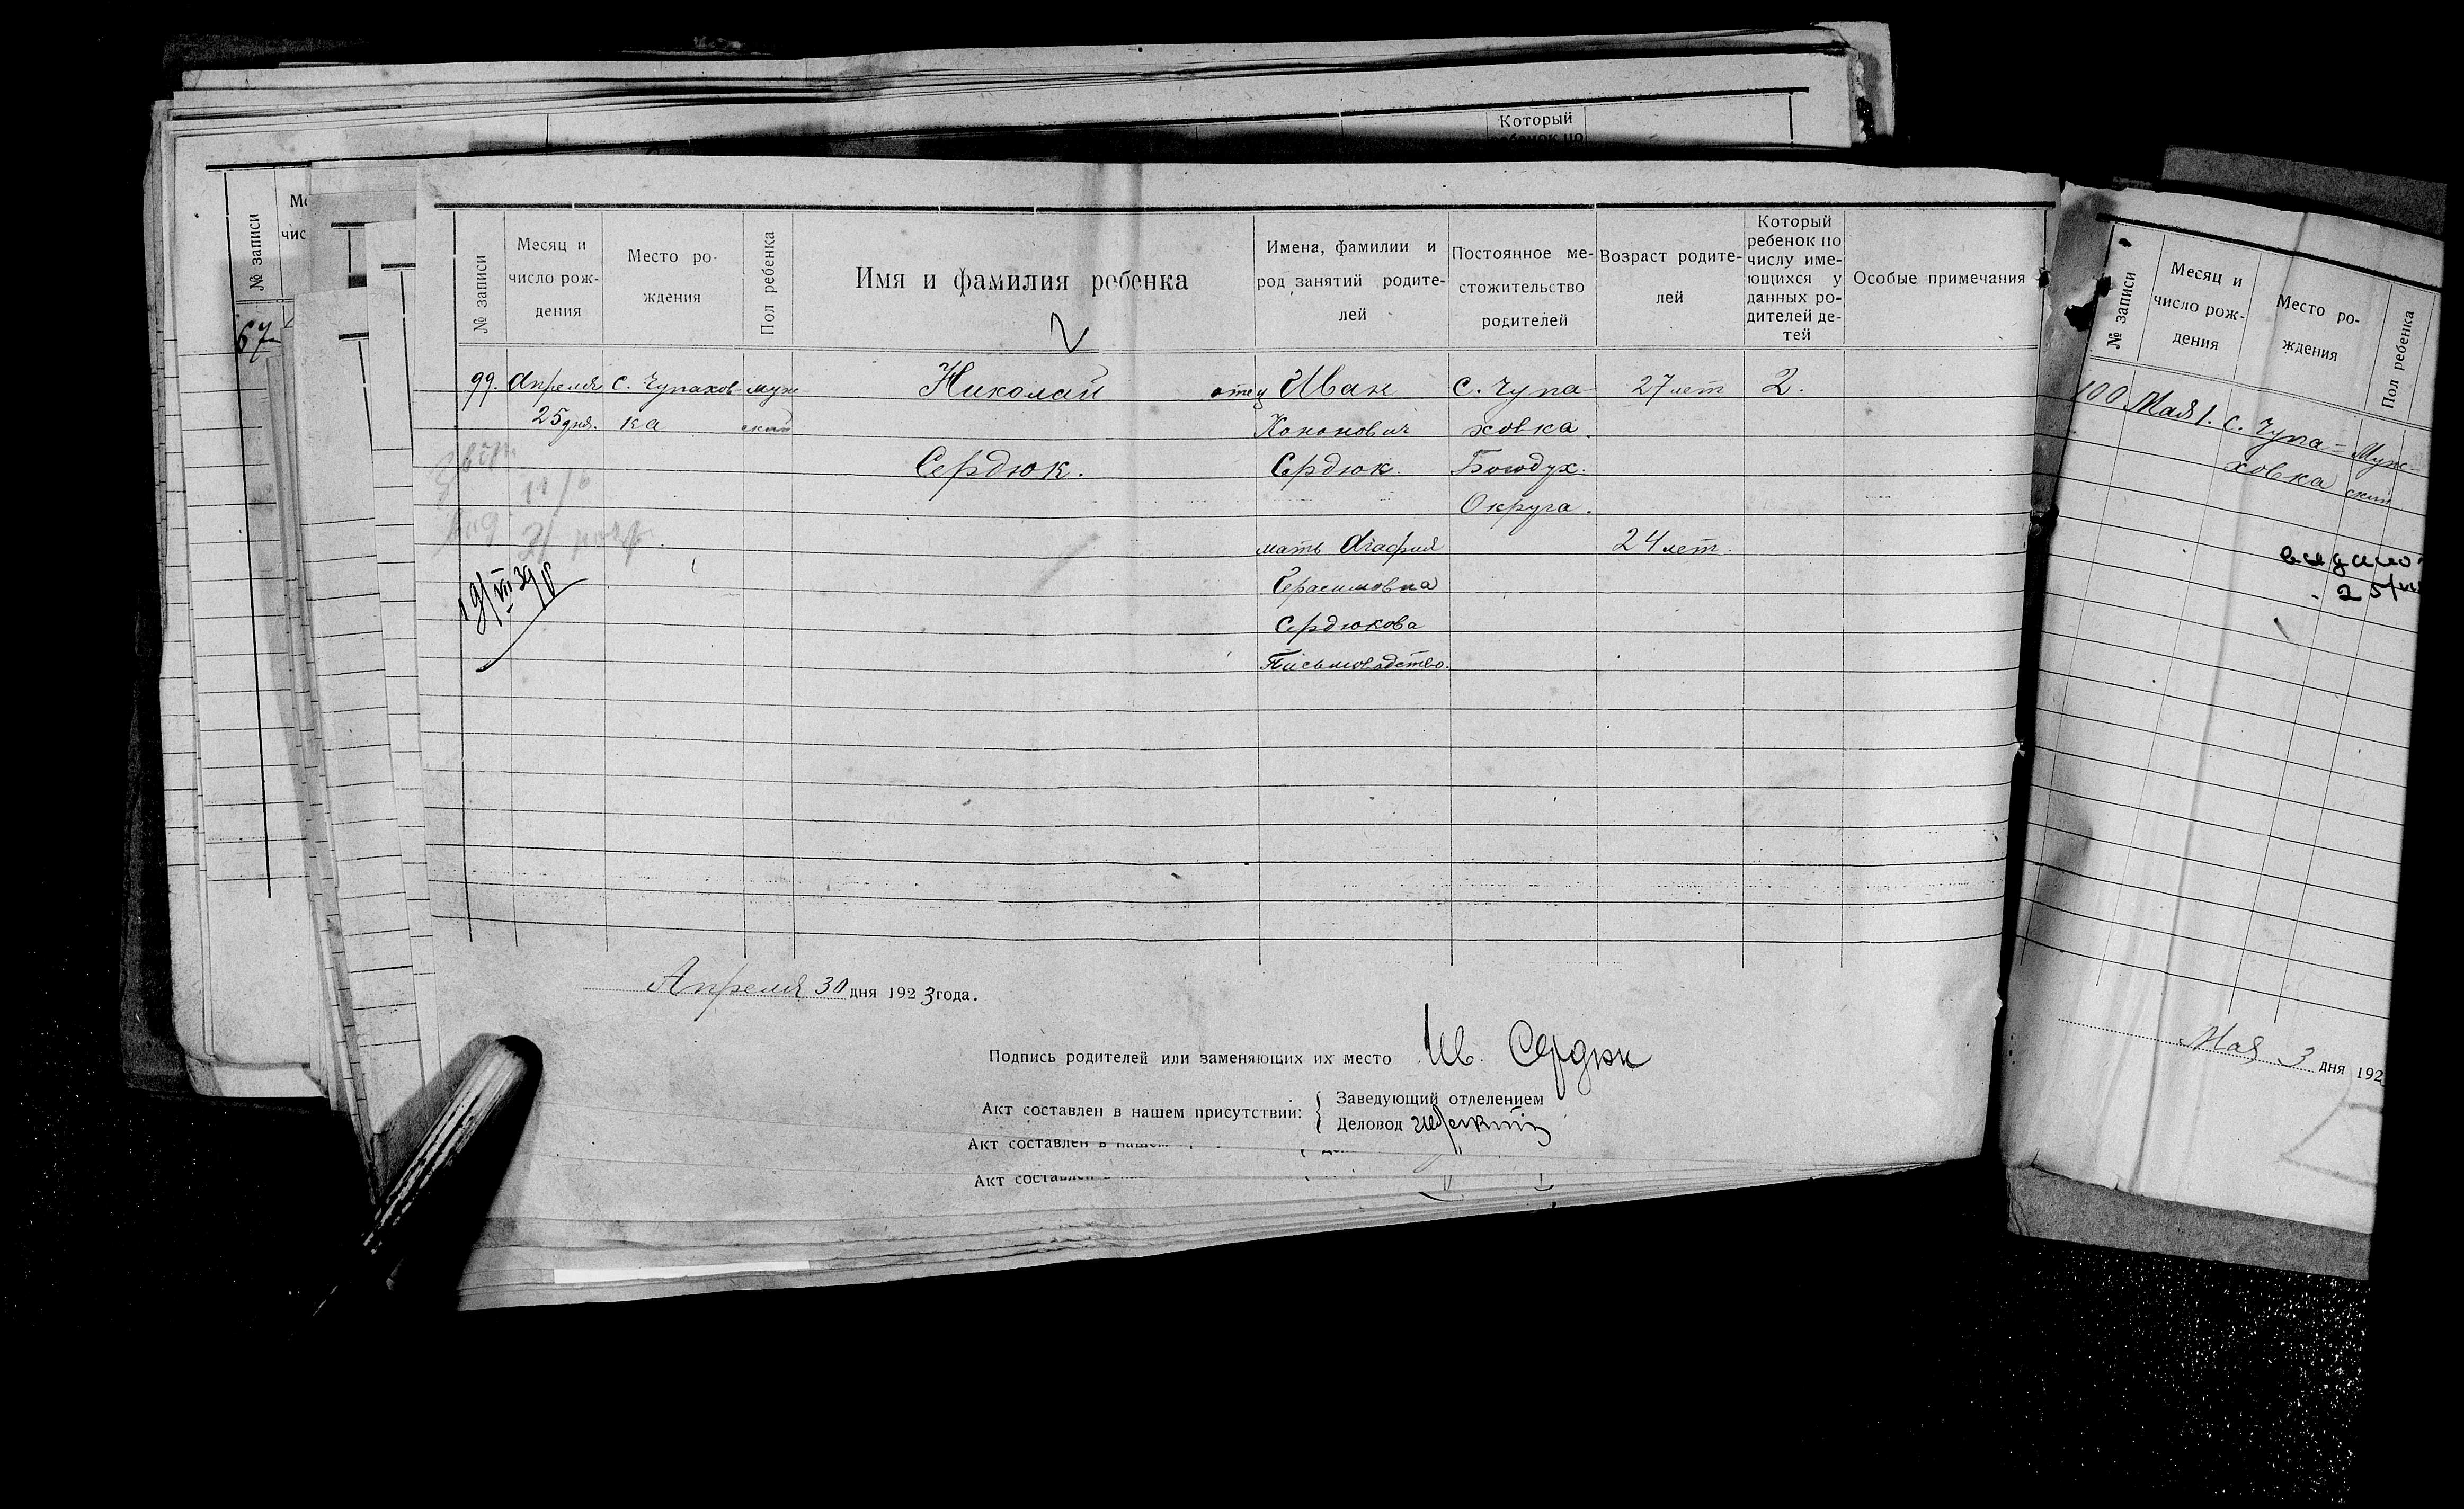 Который
ребенок по
№ записи
67
№ записи
Месяц и
число рож-
дения
Место ро-
ждения
Пол ребенка
Имя и фамилия ребенка
Имена, фамилии и
род занятий родите-
лей
Постоянное ме-
стожительство
родителей
Возраст родите-
лей
Который
ребенок по
числу име-
ющихся у
данных ро-
дителей де-
тей
Особые примечания
99. Апреля с. Чупахов- муж- Николай отец Иван с. Чупа- 27 лет 2.
25 дня. ка ской Кононович ховка.
Сердюк. Сердюк. Богодух.
Округа.
мать Агафия 24 лет.
Герасимовна
19/VII 39
Сердюкова
Письмоводство.
Апреля 30 дня 1923 года.
Подпись родителей или заменяющих их место Ив. Сердюк
Акт составлен в нашем присутствии: { Заведующий отделением
Деловод
Акт составлен в нашем
Акт составлен
№ записи
Месяц и
число рож-
дения
Место ро-
ждения
Пол ребенка
100 Мая 1. с. Чупа- Муж-
ховка ский
выдано
25/VII
Мая 3 дня 192